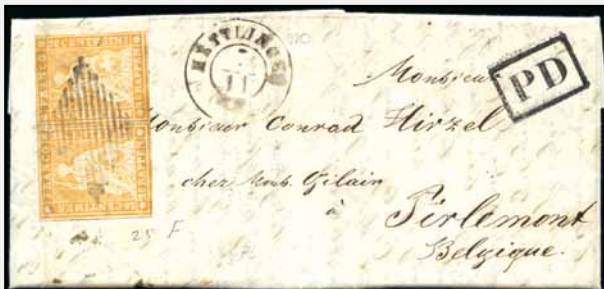 METTLINGEN
11
PD
Monsieur
Monsieur Conrad Hirzel
chez
Gilain
à
Tirlemont
Belgique.
25 F